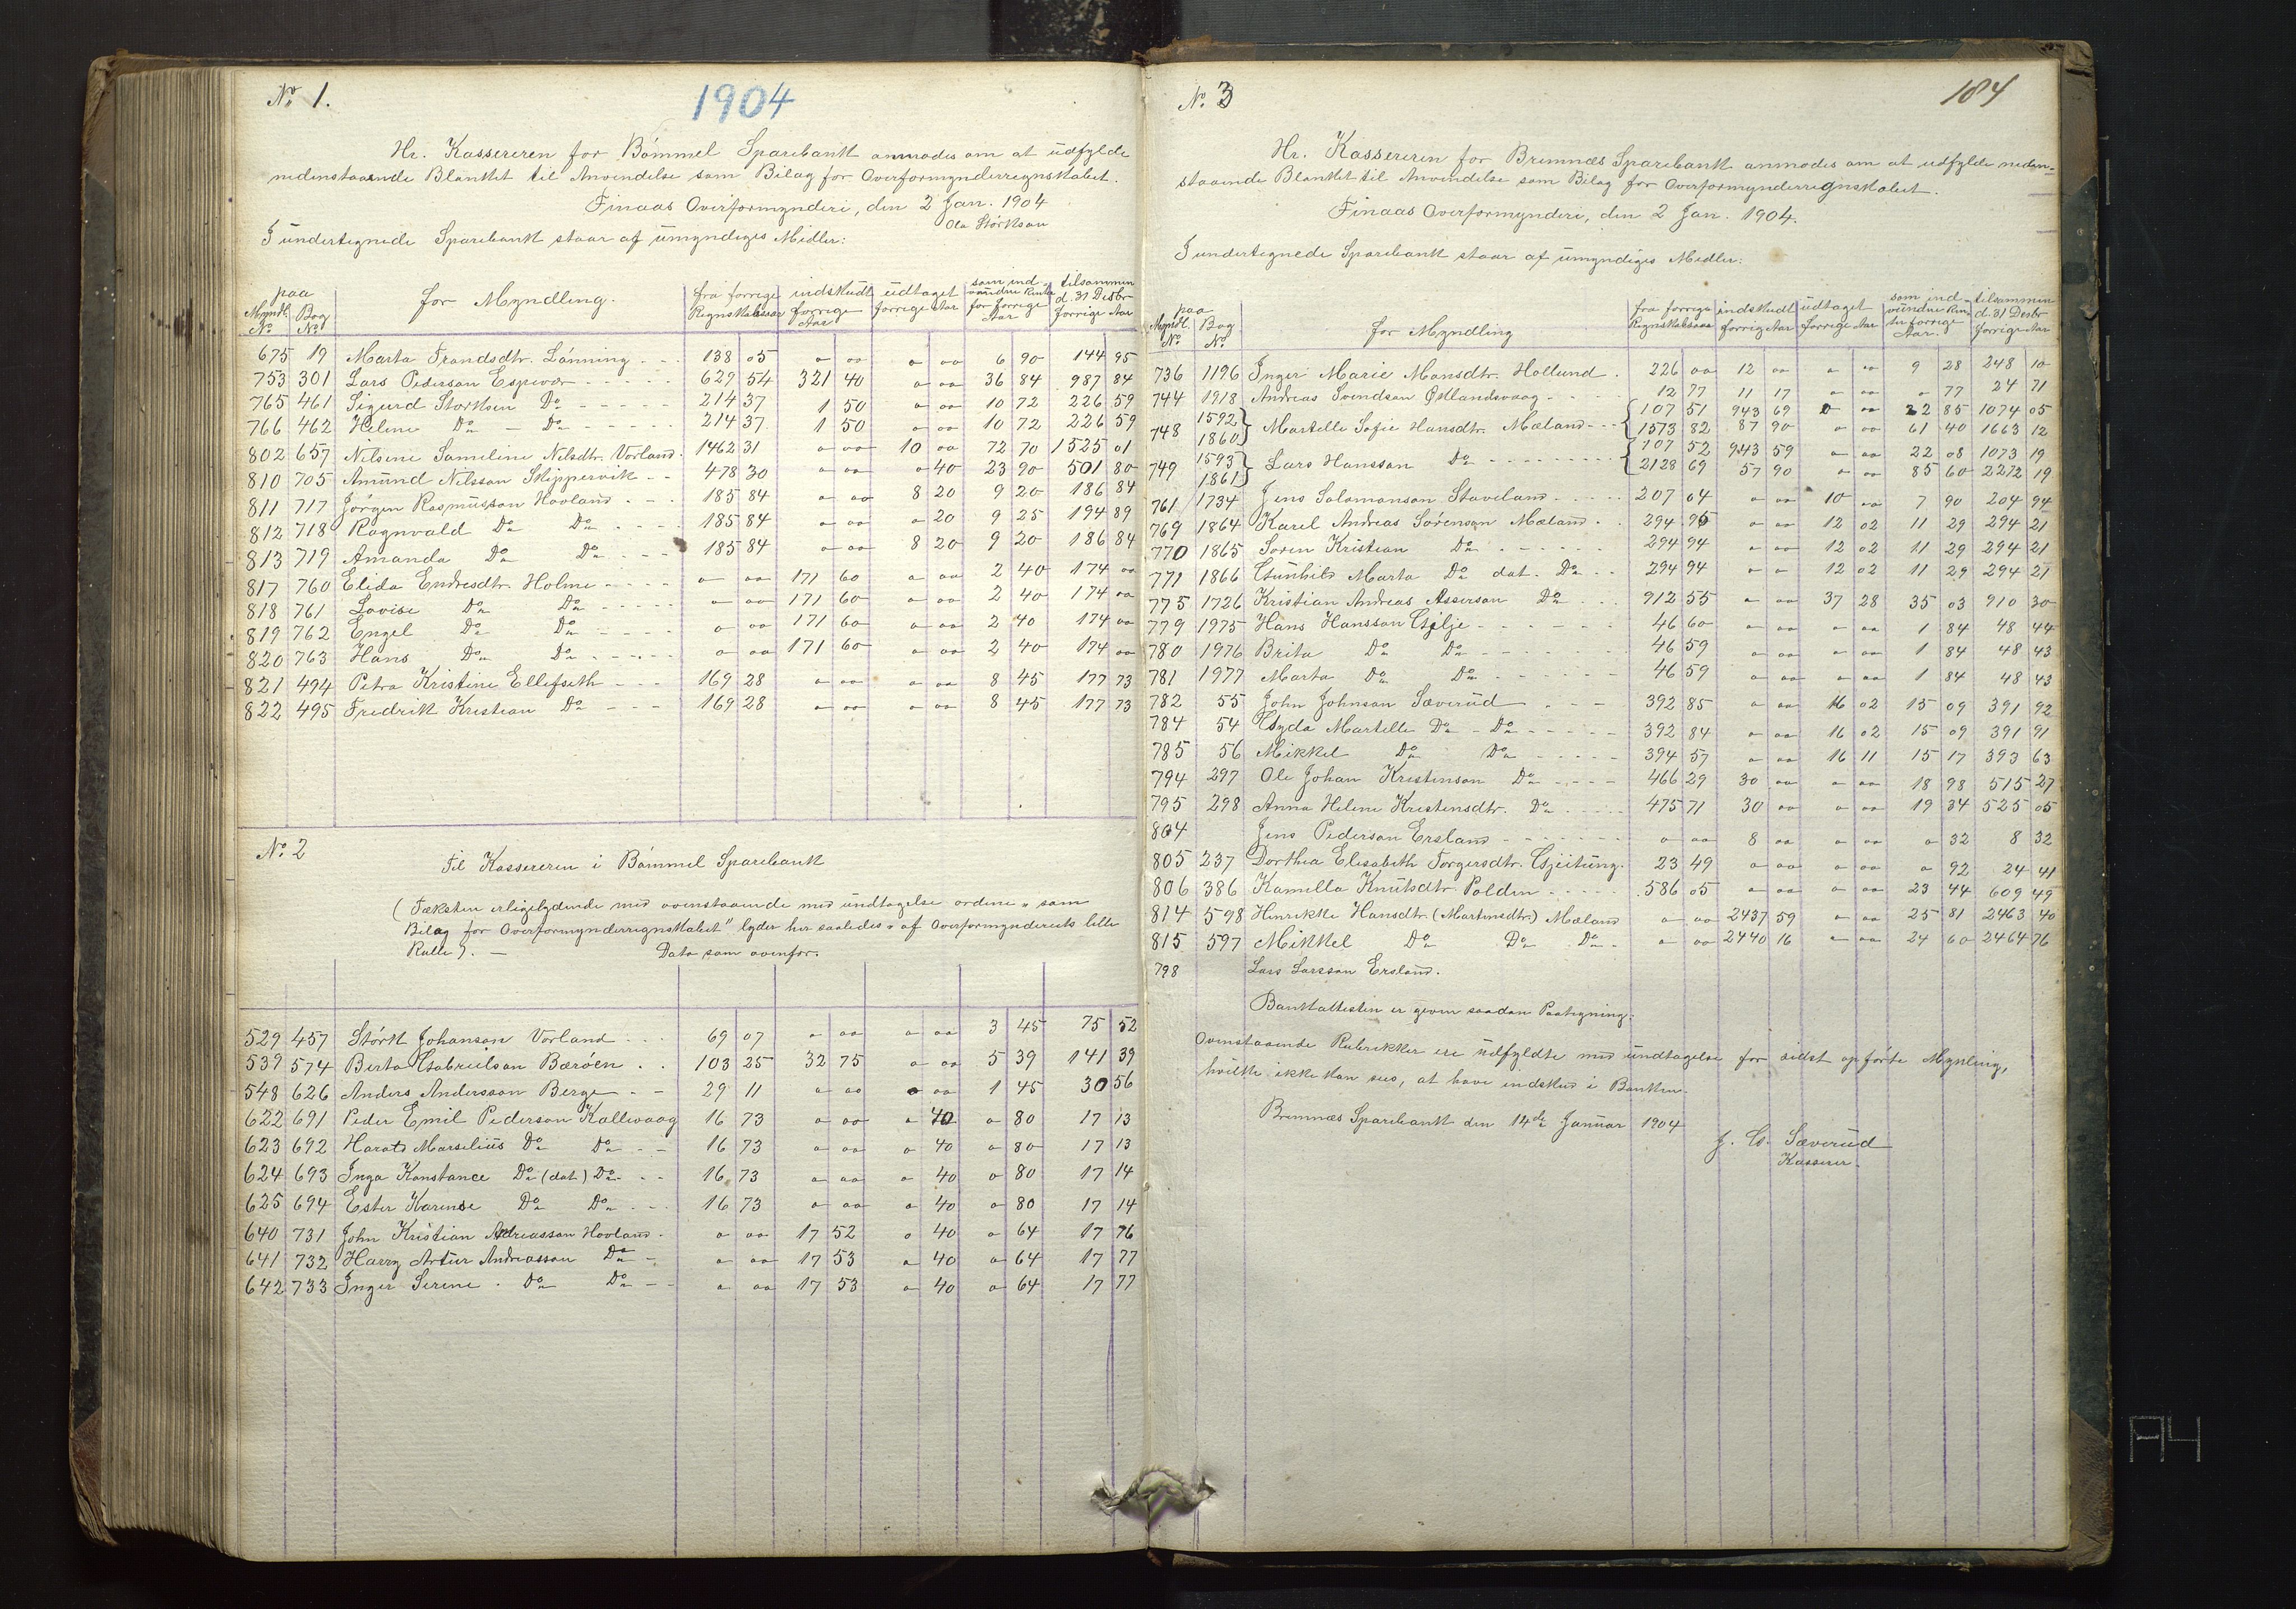 No 1.
1904
Hr. Kassereren for Bømmel Sparebank anmodes om at udfylde
nedenstaaende Blanket til Anvendelse som Bilag for Overformynderregnskabet.
Finaas Overformynderi, den 2 Jan. 1904
Ola Størkson
I undertegnede Sparebank staar af umyndiges Midler:
paa Myndl. No | Bog No | for Myndling. | fra forrige Regnskabsaar | indskudt forrige Aar | udtaget forrige Aar | som ind-vundne Renter for forrige Aar | tilsammen d. 31 Desbr forrige Aar
675 19 Marta Frandsdtr. Lønning - - 138 05 " " " " 6 90 144 95
753 301 Lars Pederson Espevær - - - - - 629 54 321 40 " " 36 84 987 84
765 461 Sigurd Storksen Do - - - - - 214 37 1 50 " " 10 72 226 59
766 462 Helene Do - Do - - - - - 214 37 1 50 " " 10 72 226 59
802 657 Nilsine Sameline Nilsdtr. Vorland. 1462 31 " " 10 " 72 70 1525 01
810 705 Amund Nilsson Skippervik - - 478 30 " " " 40 23 90 501 80
811 717 Jørgen Rasmusson Hovland - - - 185 84 " " 8 20 9 20 186 84
812 718 Ragnvald Do Do - - - - 185 84 " " " 20 9 25 194 89
813 719 Amanda Do Do - - - 185 84 " " 8 20 9 20 186 84
817 760 Elida Endresdtr. Holme - - - - " " 171 60 " " 2 40 174 "
818 761 Lovise Do Do - - - - - " " 171 60 " " 2 40 174 "
819 762 Engel Do Do - - - - " " 171 60 " " 2 40 174 "
820 763 Hans Do Do - - - - " " 171 60 " " 2 40 174 "
821 494 Petra Kristine Ellefseth - - - 169 28 " " " " 8 45 177 73
822 495 Fredrik Kristian Do - - - 169 28 " " " " 8 45 177 73
No 2
Til Kassereren i Bømmel Sparebank
(Tæksten erligelydende med ovenstaaende med undtagelse ordene „som
Bilag for Overformynderregnskabet" lyder her saaledes „af Overformynderiets lille
Rulle). - Dato som ovenfor.
529 457 Størk Johanson Vorland - - - 69 07 " " " " 3 45 75 52
539 574 Berta Gabrielson Bærøen . . 103 25 32 75 " " 5 39 141 39
548 626 Anders Andersson Berge - - 29 11 " " " " 1 45 30 56
622 691 Peder Emil Pederson Kallevaag 16 73 " " " 40 " 80 17 13
623 692 Harald Marselius Do Do - - 16 73 " " " 40 " 80 17 13
624 693 Inga Konstance Do (dat) Do - - 16 73 " " " 40 " 80 17 14
625 694 Ester Karense Do Do - - - 16 73 " " " 40 " 80 17 14
640 731 John Kristian Adreasson Hovland - " " 17 52 " 40 " 64 17 76
641 732 Harry Artur Andreasson Do - " " 17 53 " 40 " 64 17 77
642 733 Inger Serine . Do Do - - " " 17 53 " 40 " 64 17 77
No. 3
184
Hr. Kassereren for Bremnæs Sparebank anmodes om at udfylde neden-
staaende Blanket til Anvendelse som Bilag for Overformynderregnskabet.
Finaas Overformynderi, den 2 Jan. 1904.
I undertegnede Sparebank staar af umyndiges Midler:
paa Myndl. No | Bog No. | for Myndling | fra forrige Regnskabsaar | indskudt forrige Aar | udtaget forrige Aar | som ind-vundne Ren-ter forrige Aar. | tilsammen d. 31 Desbr forrige Aar
736 1196 Inger Marie Monsdtr. Hollund . 226 " 12 " " " 9 28 248 10
744 1918 Andreas Svendson Østlandsvaag - - - - 12 77 11 17 " " " 77 24 71
748 1592 } Martelle Sofie Hansdtr. Mæland - - - { 107 51 943 69 " " 22 85 1074 05
1860 } 1573 82 87 90 " " 61 40 1663 12
749 1593 } Lars Hansson Do - - - - - - - - - { 107 52 943 59 " " 22 08 1073 19
1861 } 2128 69 57 90 " " 85 60 2272 19
761 1734 Jens Salomonson Staveland - - - - - 207 04 " " 10 " 7 90 204 94
769 1864 Karel Andreas Sørenson Mæland . . 294 95 " " 12 02 11 29 294 21
770 1865 Soren Kristian Do - - - - - - 294 94 " " 12 02 11 29 294 21
771 1866 Gunhild Marta Do dat. Do - - 294 94 " " 12 02 11 29 294 21
775 1726 Kristian Andreas Asserson Do - - - 912 55 " " 37 28 35 03 910 30
779 1975 Hans Hansson Gilje - - - - - - 46 60 " " " " 1 84 48 44
780 1976 Brita Do Do - - - - - - 46 59 " " " " 1 84 48 43
781 1977 Marta Do Do - - - - - - 46 59 " " " " 1 84 48 43
782 55 John Johnson Sæverud - - - 392 85 " " 16 02 15 09 391 92
784 54 Gyda Martelle Do - Do - - - - - 392 84 " " 16 02 15 09 391 91
785 56 Mikkel Do Do - - - - - 394 57 " " 16 11 15 17 393 63
794 297 Ole Johan Kristenson Do - - - - 466 29 30 " " " 18 98 515 27
795 298 Anna Helene Kristensdtr. Do - - - - 475 71 30 " " " 19 34 525 05
804 Jens Pederson Ersland - - - - - - - " " 8 " " " " 32 8 32
805 237 Dorthea Elisabeth Torgersdtr. Gjeitung. 23 49 " " " " " 92 24 41
806 386 Kamilla Knutsdtr. Polden - - - - - 586 05 " " " " 23 44 609 49
814 598 Henrikke Hansdtr. (Martinsdtr.) Mæland " " 2437 59 " " 25 81 2463 40
815 597 Mikkel Do Do Do - " " 2440 16 " " 24 60 2464 76
798 Lars Larsson Ersland.
Bankattesten er given saadan Paategning:
Ovenstaaende Rubrikker ere udfyldte med undtagelse for sidst opførte Mynling,
hvilke ikke kan sees, at have indskud i Banken.
Bremnæs Sparebank den 14de Januar 1904
J. G. Sæverud
Kasserer.